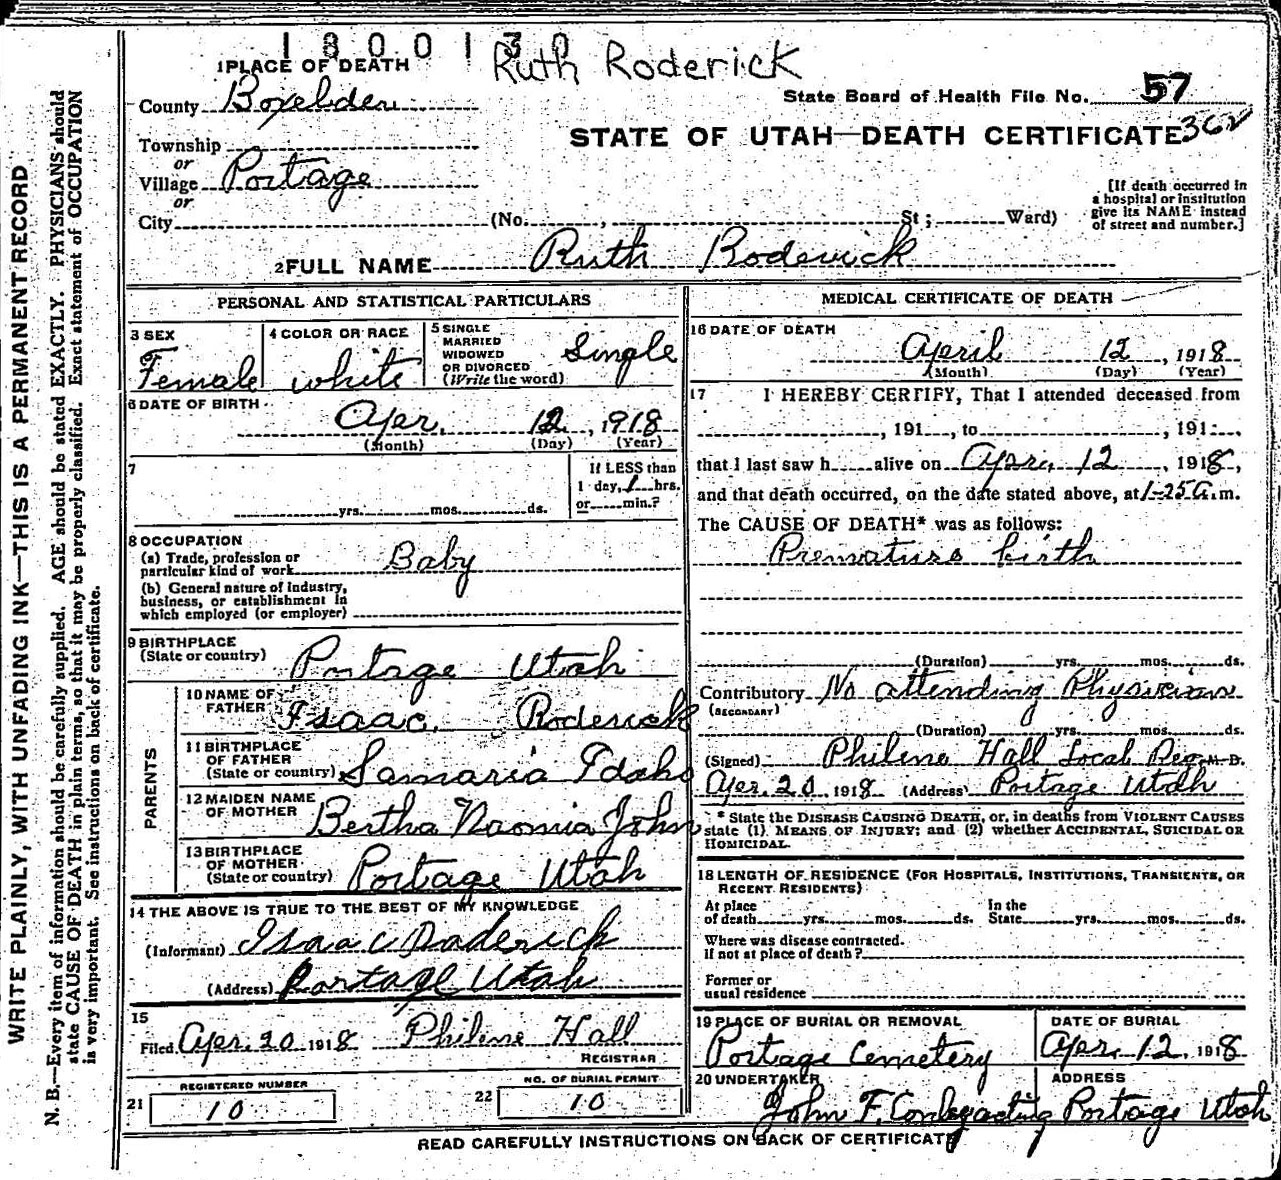 1800130
Ruth Roderick
1 PLACE OF DEATH
County Boxelder
State Board of Health File No. 57
STATE OF UTAH—DEATH CERTIFICATE 362
Township
or
Village Portage
or
City (No. , St; Ward)
[If death occurred in
a hospital or institution
give its NAME instead
of street and number.]
2 FULL NAME Ruth Roderick
PERSONAL AND STATISTICAL PARTICULARS
3 SEX
Female
4 COLOR OR RACE
white
5 SINGLE
MARRIED
WIDOWED
OR DIVORCED
(Write the word)
Single
6 DATE OF BIRTH
Apr. 12, 1918
(Month) (Day) (Year)
7
yrs. mos. ds.
If LESS than
1 day, 1 hrs.
or min.?
8 OCCUPATION
(a) Trade, profession or
particular kind of work Baby
(b) General nature of industry,
business, or establishment in
which employed (or employer)
9 BIRTHPLACE
(State or country) Portage Utah
PARENTS
10 NAME OF
FATHER Isaac. Roderick
11 BIRTHPLACE
OF FATHER
(State or country) Samaria Idaho
12 MAIDEN NAME
OF MOTHER Bertha Naomia John
13 BIRTHPLACE
OF MOTHER
(State or country) Portage Utah
14 THE ABOVE IS TRUE TO THE BEST OF MY KNOWLEDGE
(Informant) Isaac Roderick
(Address) Portage Utah
15
Filed Apr. 20 1918 Philene Hall
REGISTRAR
REGISTERED NUMBER
21 10
NO. OF BURIAL PERMIT
22 10
MEDICAL CERTIFICATE OF DEATH
16 DATE OF DEATH
April 12, 1918
(Month) (Day) (Year)
17 I HEREBY CERTIFY, That I attended deceased from
, 191 , to , 191 ,
that I last saw h alive on Apr. 12, 1918,
and that death occurred, on the date stated above, at 1-25 A. m.
The CAUSE OF DEATH* was as follows:
Premature birth
(Duration) yrs. mos. ds.
Contributory No attending Physician
(SECONDARY)
(Duration) yrs. mos. ds.
(Signed) Philene Hall Local Reg. M. D.
Apr. 20 1918 (Address) Portage Utah
* State the DISEASE CAUSING DEATH, or, in deaths from VIOLENT CAUSES
state (1) MEANS OF INJURY; and (2) whether ACCIDENTAL, SUICIDAL OR
HOMICIDAL.
18 LENGTH OF RESIDENCE (FOR HOSPITALS, INSTITUTIONS, TRANSIENTS, OR
RECENT RESIDENTS)
At place
of death yrs. mos. ds.
In the
State yrs. mos. ds.
Where was disease contracted.
If not at place of death?
Former or
usual residence
19 PLACE OF BURIAL OR REMOVAL
Portage Cemetery
DATE OF BURIAL
Apr. 12. 1918
20 UNDERTAKER
John F. acting
ADDRESS
Portage Utah
READ CAREFULLY INSTRUCTIONS ON BACK OF CERTIFICATE
WRITE PLAINLY, WITH UNFADING INK—THIS IS A PERMANENT RECORD
N. B.—Every item of information should be carefully supplied. AGE should be stated EXACTLY. PHYSICIANS should
state CAUSE OF DEATH in plain terms, so that it may be properly classified. Exact statement of OCCUPATION
is very important. See instructions on back of certificate.